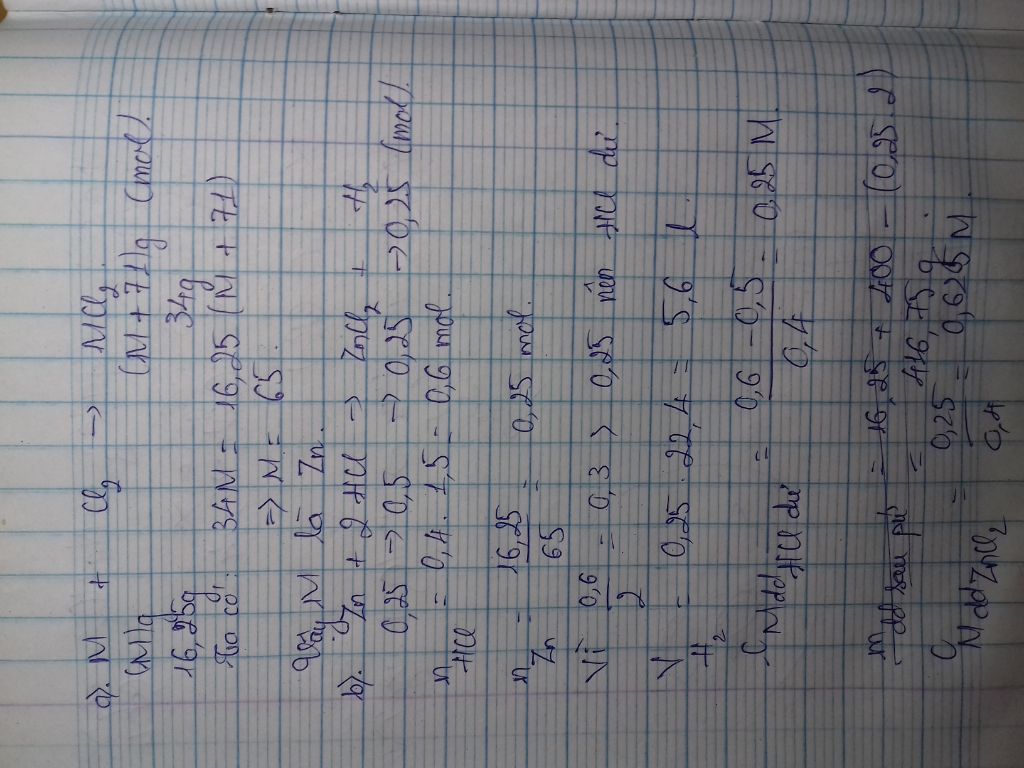 a). M + Cl2 → MCl2
(M)g (M + 71)g (mol).
16,25g 34g
Ta có: 34M = 16,25 (M + 71)
=> M = 65.
Vậy M là Zn.
b). Zn + 2HCl → ZnCl2 + H2
0,25 → 0,5 → 0,25 → 0,25 (mol).
nHCl = 0,4 . 1,5 = 0,6 mol.
nZn = 16,25/65 = 0,25 mol.
Vì 0,6/2 = 0,3 > 0,25 nên HCl dư.
VH2 = 0,25 . 22,4 = 5,6 l.
CM dd HCl dư = 0,6 - 0,5/0,4 = 0,25 M.
m dd sau pứ = 16,25 + 400 - (0,25 . 2)
= 416,75 g.
CM dd ZnCl2 = 0,25/0,4 = 0,625 M.